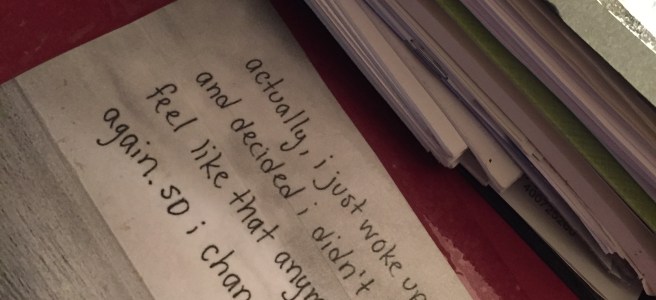 actually, i just woke up
and decided i didn't
feel like that anym
again. so i chan